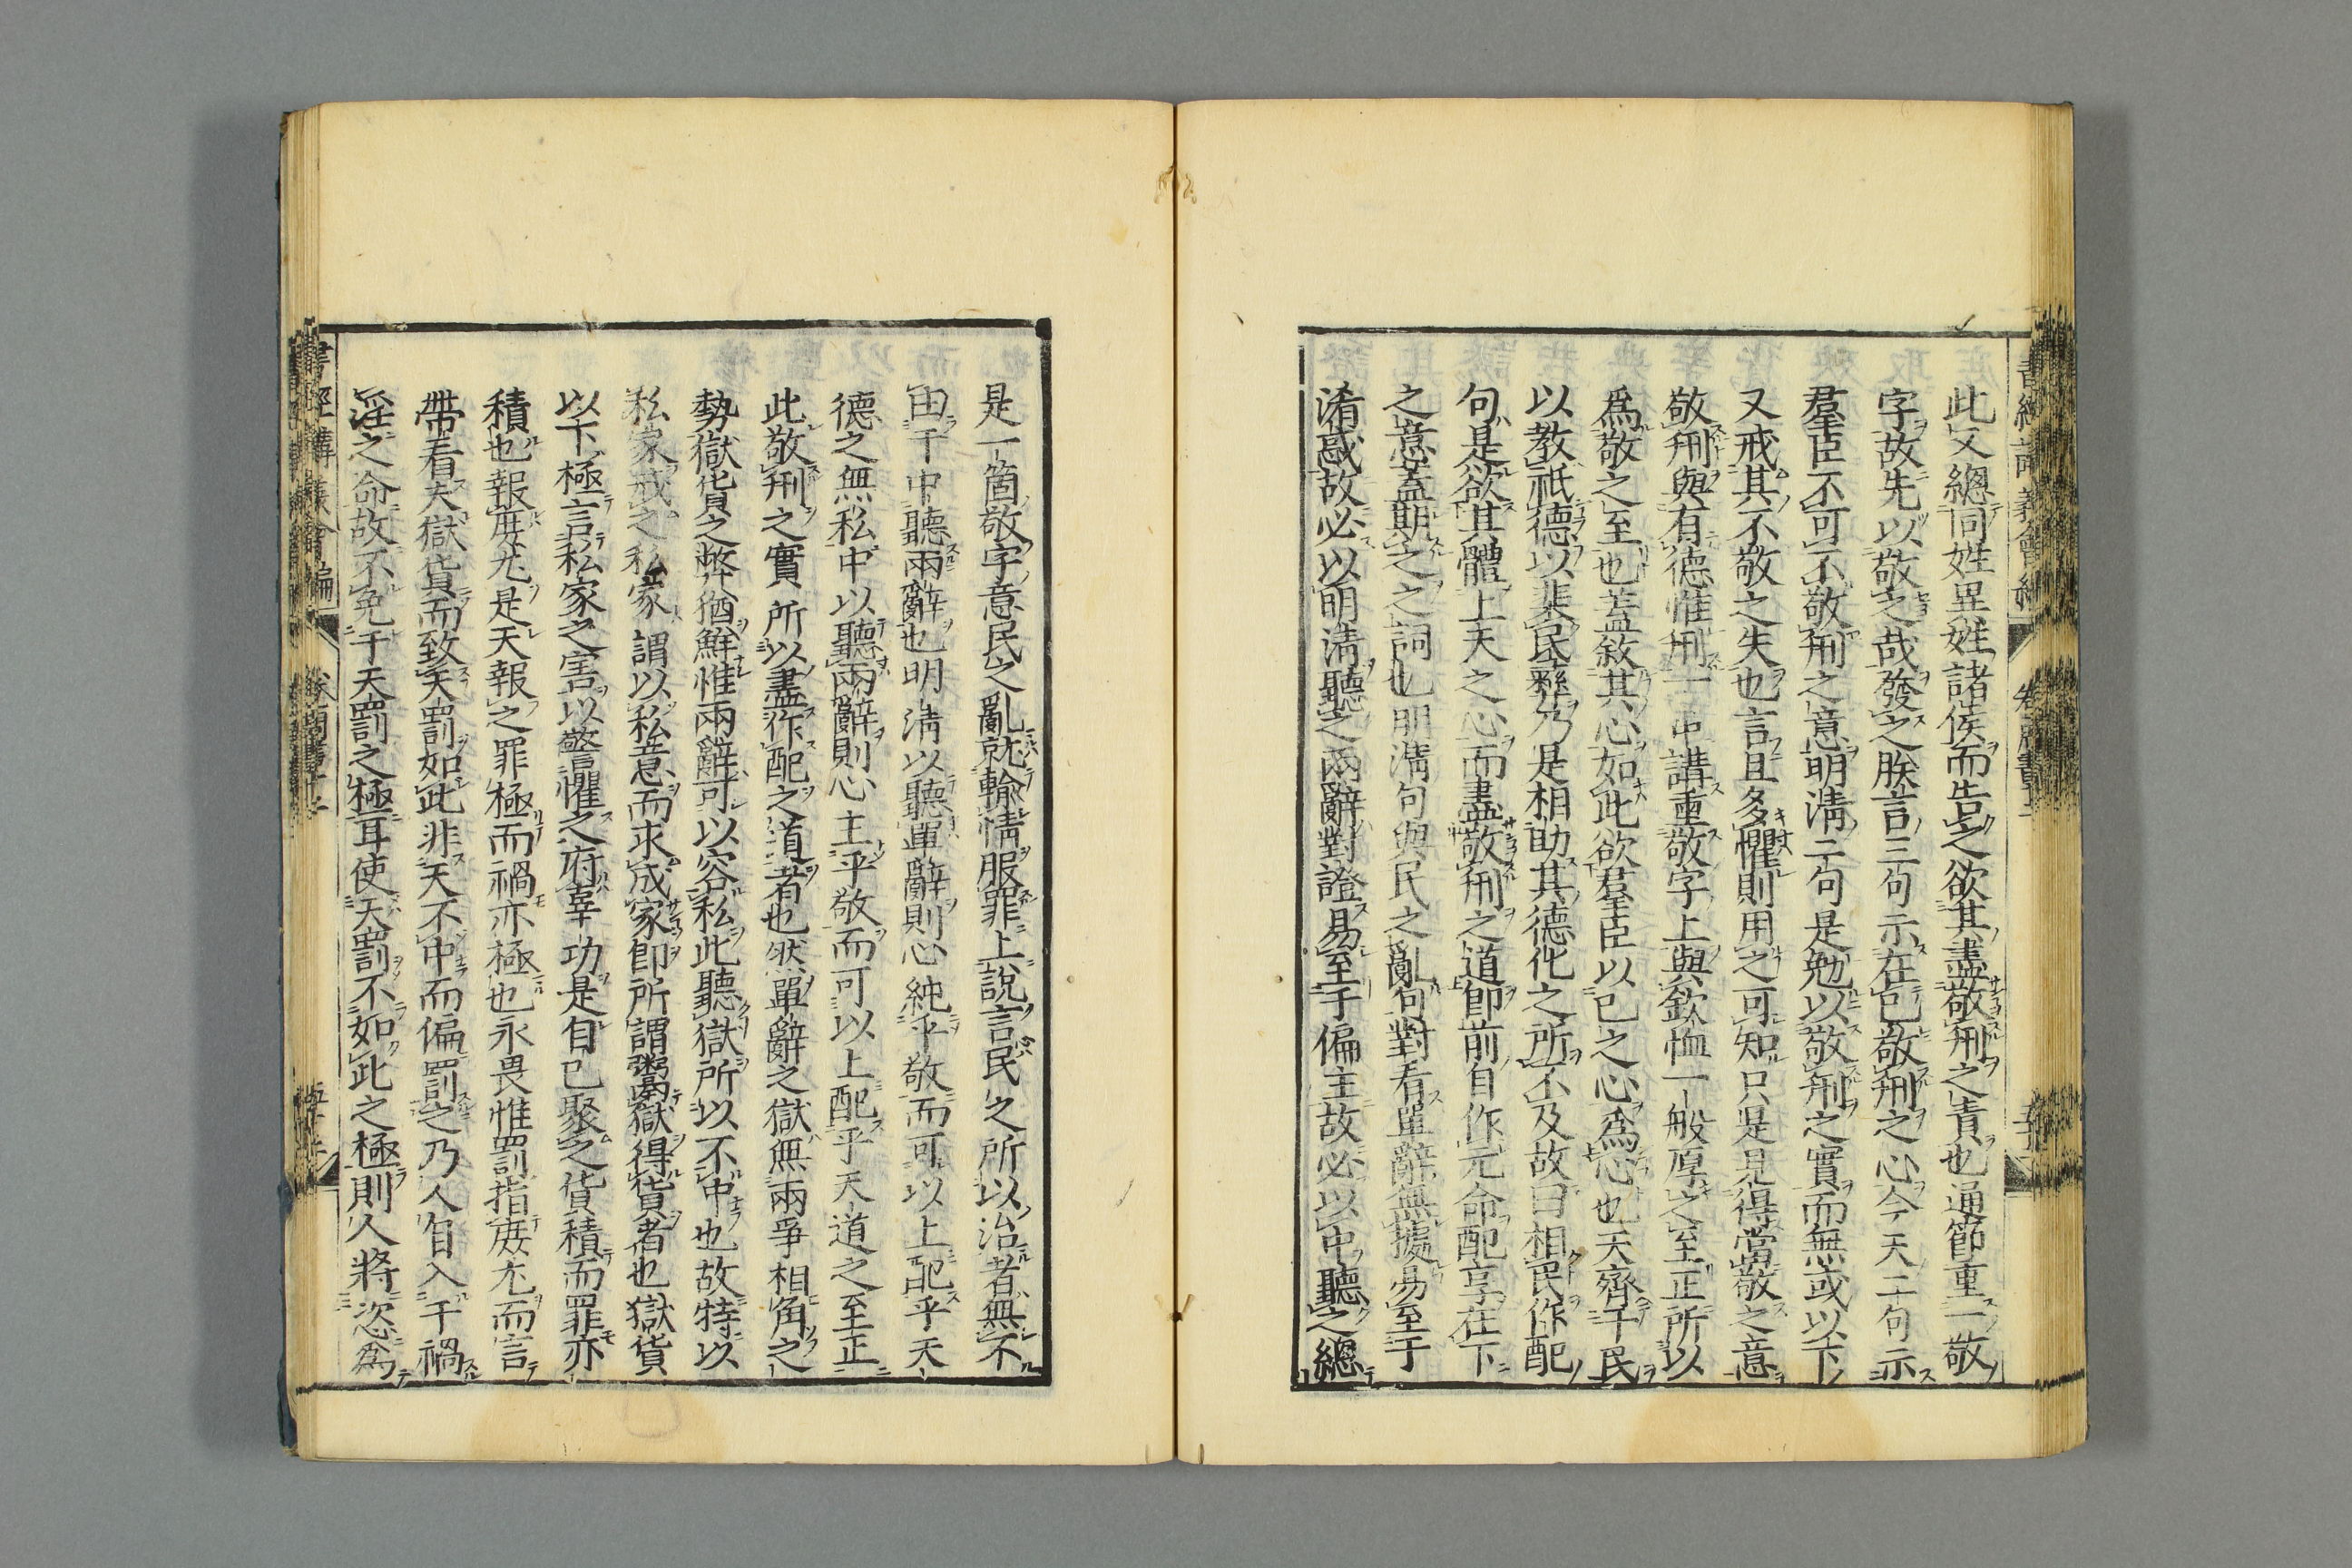 此又總同姓異姓諸侯而告之欲其盡敬刑之責也通節重一敬
字故先以敬之哉發之朕言三句示在己敬刑之心今天二句示
羣臣不可不敬刑之意明淸二句是勉以敬刑之實而無或以下
又戒其不敬之失也言且多懼則用之可知只是見得當敬之意
敬刑與有德惟刑一串講重敬字上與欽恤一般原之至正所以
爲敬之至也蓋敘其心如此欲羣臣以己之心爲心也天齊于民
以教祗德以棐民彝乃是相助其德化之所不及故曰相民作配
句是欲其體上天之心而盡敬刑之道卽前自作元命配享在下
之意蓋期之之詞也明淸句與民之亂句對看單辭無據易至于
淆惑故必以明淸聽之兩辭對證易至于偏主故必以中聽之總
是一箇敬字意民之亂就輸情服罪上說言民之所以治者無不
由于中聽兩辭也明淸以聽單辭則心純乎敬而可以上配乎天
德之無私中以聽兩辭則心主乎敬而可以上配乎天道之至正
此敬刑之實所以盡作配之道者也然單辭之獄無兩爭相角之
勢獄貨之弊猶鮮惟兩辭可以容私此聽獄所以不中也故特以
私家戒之私家謂以私意而求成家卽所謂鬻獄得貨者也獄貨
以下極言私家之害以警懼之府辜功是自己聚之貨積而罪亦
積也報庶尤是天報之罪極而禍亦極也永畏惟罰指庶尤而言
帶看夫獄貨而致天罰如此非天不中而偏罰之乃人自入于禍
淫之命故不免于天罰之極耳使天罰不如此之極則人將恣爲
書經講義會編